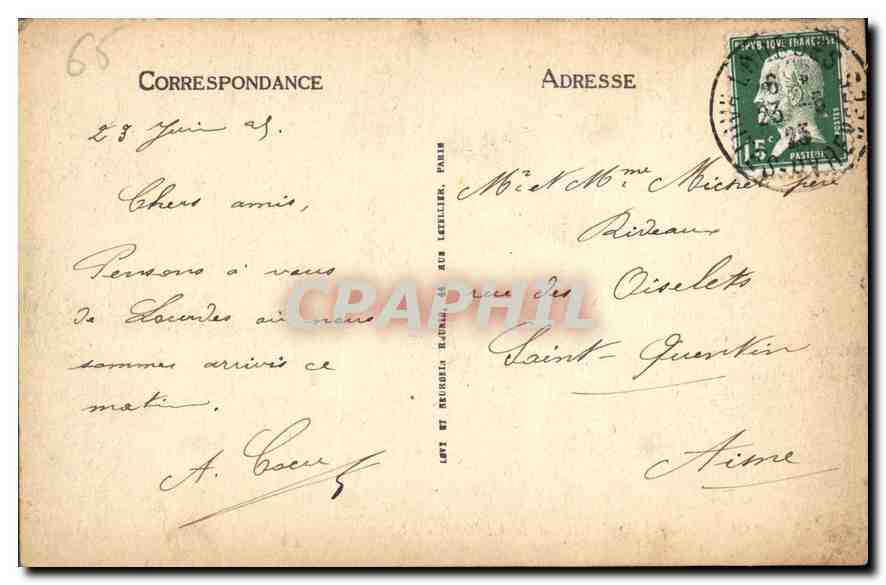 65
CORRESPONDANCE
23 Juin 25.
Chers amis,
Pensons à vous
de Lourdes où nous
sommes arrivés ce
matin.
A. Coeu
LEVY ET NEURDEIN REUNIS, 44 RUE LETELLIER, PARIS
ADRESSE
REPVBLIQVE FRANÇAISE
POSTES
15c
PASTEUR
6
23 - 6
25
Mr et Mme Michel père
Rideaux
rue des Oiselets
Saint-Quentin
Aisne
CPAPHIL